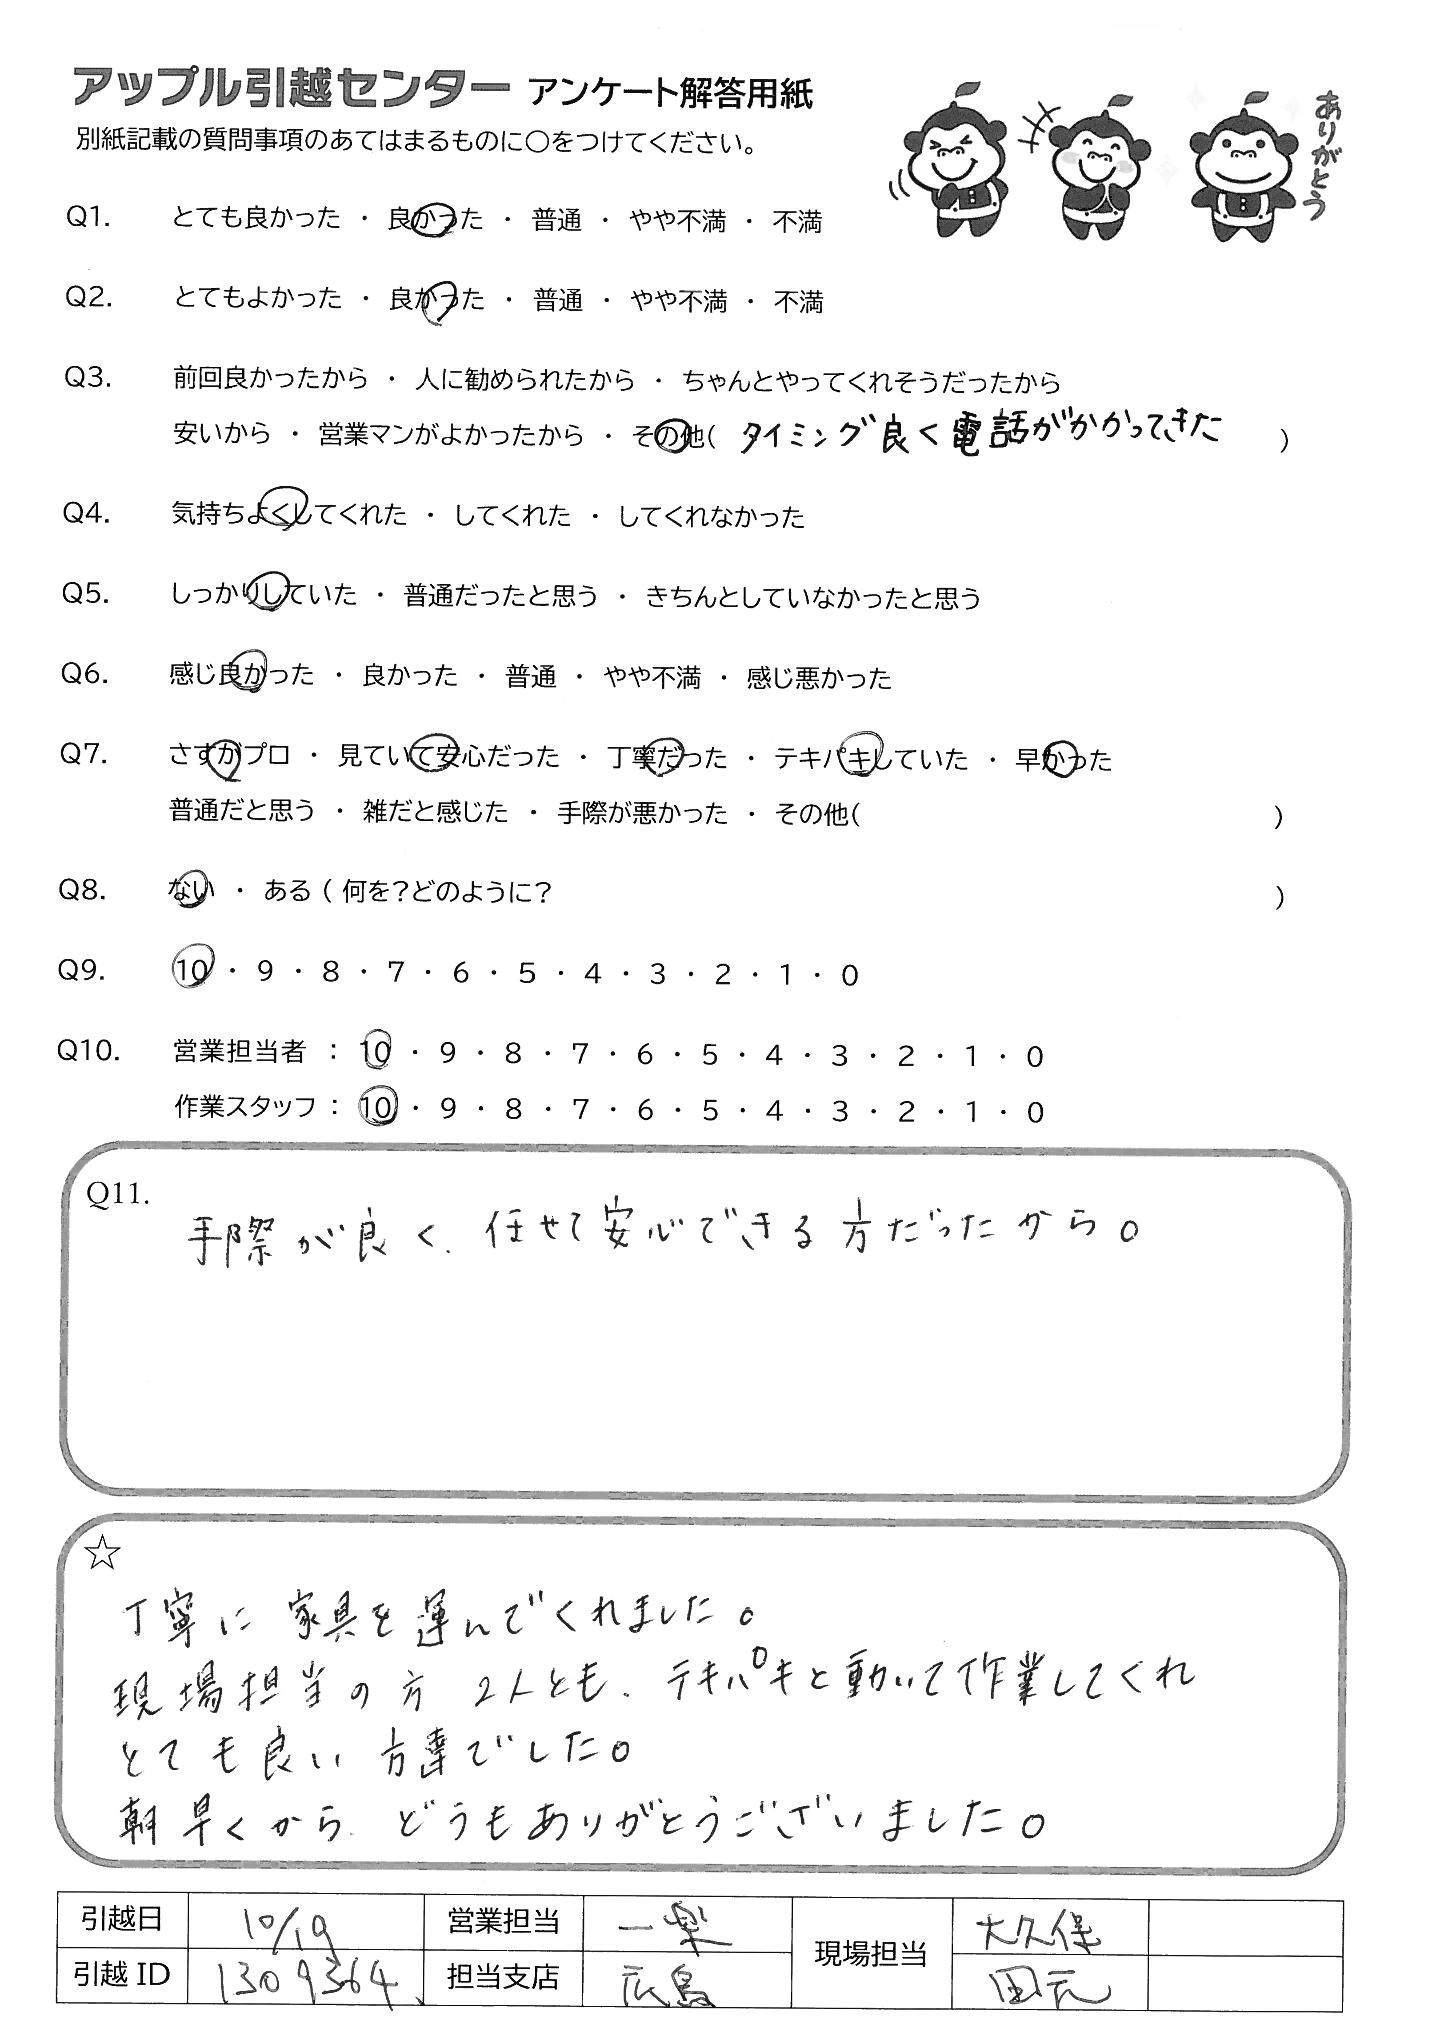 アップル引越センター アンケート解答用紙
別紙記載の質問事項のあてはまるものに〇をつけてください。
ありがとう
Q1. とても良かった ・ 良かった ・ 普通 ・ やや不満 ・ 不満
Q2. とてもよかった ・ 良かった ・ 普通 ・ やや不満 ・ 不満
Q3. 前回良かったから ・ 人に勧められたから ・ ちゃんとやってくれそうだったから
安いから ・ 営業マンがよかったから ・ その他( タイミング良く電話がかかってきた )
Q4. 気持ちよくしてくれた ・ してくれた ・ してくれなかった
Q5. しっかりしていた ・ 普通だったと思う ・ きちんとしていなかったと思う
Q6. 感じ良かった ・ 良かった ・ 普通 ・ やや不満 ・ 感じ悪かった
Q7. さすがプロ ・ 見ていて安心だった ・ 丁寧だった ・ テキパキしていた ・ 早かった
普通だと思う ・ 雑だと感じた ・ 手際が悪かった ・ その他( )
Q8. ない ・ ある ( 何を?どのように? )
Q9. 10 ・ 9 ・ 8 ・ 7 ・ 6 ・ 5 ・ 4 ・ 3 ・ 2 ・ 1 ・ 0
Q10. 営業担当者 : 10 ・ 9 ・ 8 ・ 7 ・ 6 ・ 5 ・ 4 ・ 3 ・ 2 ・ 1 ・ 0
作業スタッフ : 10 ・ 9 ・ 8 ・ 7 ・ 6 ・ 5 ・ 4 ・ 3 ・ 2 ・ 1 ・ 0
Q11.
手際が良く、任せて安心できる方だったから。
☆
丁寧に家具を運んでくれました。
現場担当の方 2人とも、テキパキと動いて作業してくれ
とても良い方達でした。
朝早くから、どうもありがとうございました。
引越日 10/19 営業担当 一楽 現場担当 大久保
引越ID 1309364 担当支店 広島 田元